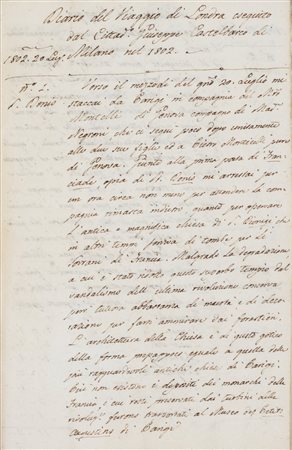 Diario del Viaggio di Londra eseguito
dal Citt.º Giuseppe Castelbarco di
1802. 20 Lug.º Milano nel 1802.
N.º 1.
S. Denis Verso il mezzodì del g.no 20. Luglio mi
staccai da Parigi in compagnia di
Monticelli di Genova compagno di
Negroni che ci seguì poco dopo unitamente
alle due sue figlie ed a Pietro Monticelli pure
di Genova. Giunto alla prima posta di Fran-
ciade, ossia di St. Denis mi arrestai per
un ora circa non meno per attendere la com-
pagnia rimasta indietro, quanto per osservare
l'antica e magnifica chiesa di S. Dionigi che
in altri tempi serviva di tomba per li
Sovrani di Francia. Malgrado la degradazione
a cui è stato ridotto questo superbo tempio dal
vandalismo dell'ultima rivoluzione conserva
pur tuttora abbastanza di maestà e di deco-
razione per farsi ammirare dai forestieri.
L'architettura della Chiesa è di gusto gotico
della forma eguale a quella delle
più ragguardevoli antiche chiese di Parigi.
Più non esistono i depositi dei monarchi della
Francia, i cui resti preservati dai furibondi alla
rivoluz.e furono trasportati al Museo
Augustins di Parigi.